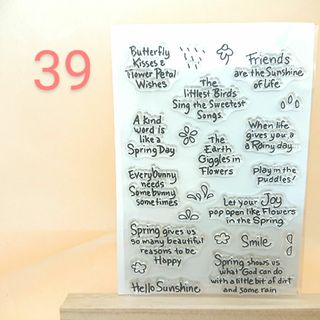 39
Butterfly
Kisses &
Flower Petal
Wishes
Friends
are the Sunshine
of Life
The
littlest Birds
Sing the Sweetest
Songs.
A kind
word is
like a
Spring Day
When life
gives you a
a Rainy day
play in the
puddles!
The
Earth
Giggles in
Flowers
Everybunny
needs
Some bunny
sometimes
Let your Joy
pop open like Flowers
in the Spring
Spring gives us
so many beautiful
reasons to be
Happy
Smile
Spring shows us
what God can do
with a little bit of dirt
and some rain
Hello Sunshine